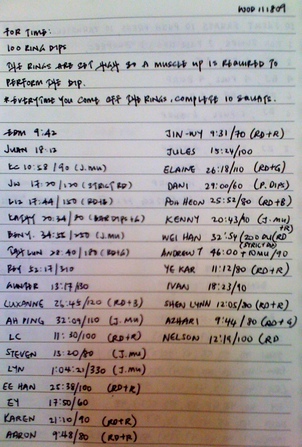 WOD 111809
FOR TIME:
100 RING DIPS
THE RINGS ARE SET HIGH SO A MUSCLE UP IS REQUIRED TO
PERFORM THE DIP.
*EVERYTIME YOU COME OFF THE RINGS, COMPLETE 10 SQUATS.
9:42
JUAN 18:12
LC 10:58 / 90 (J.MU)
JW 17:20/120 (STRICT RD)
LIZ 17:44/150 (RD+B)
34:55 (J.MU)
28:40/180 (RD+G)
ROY 32:17/310
13:17/30
LUXANNE 26:45/120 (RD+B)
AH PING 32:09/110 (J.MU)
LC 11:30/100 (RD+R)
STEVEN 13:20/80 (J.MU)
LYN 1:04:21/330 (J.MU)
EE HAN 25:38/100 (RD+R)
EY 17:50/60
KAREN 21:10/90 (RD+R)
AARON 9:48/80 (RD+R)
JIN-NY 9:31/70 (RD+R)
JULES 15:24/100
ELAINE 26:18/110 (RD+G)
DANI 29:00/60 (P.DIPS)
POH HEON 25:52/80 (RD+B)
KENNY 20:43/90 (J.MU +R)
WEI HAN 32:54/200 (RD
ANDREW T 46:00 + /90
YE KAR 11:12/80 (RD+R)
IVAN 18:23/90
SHEN LYNN 12:05/30 (RD+R)
AZHARI 9:44/80 (RD+G)
NELSON 12:19/100 (RD